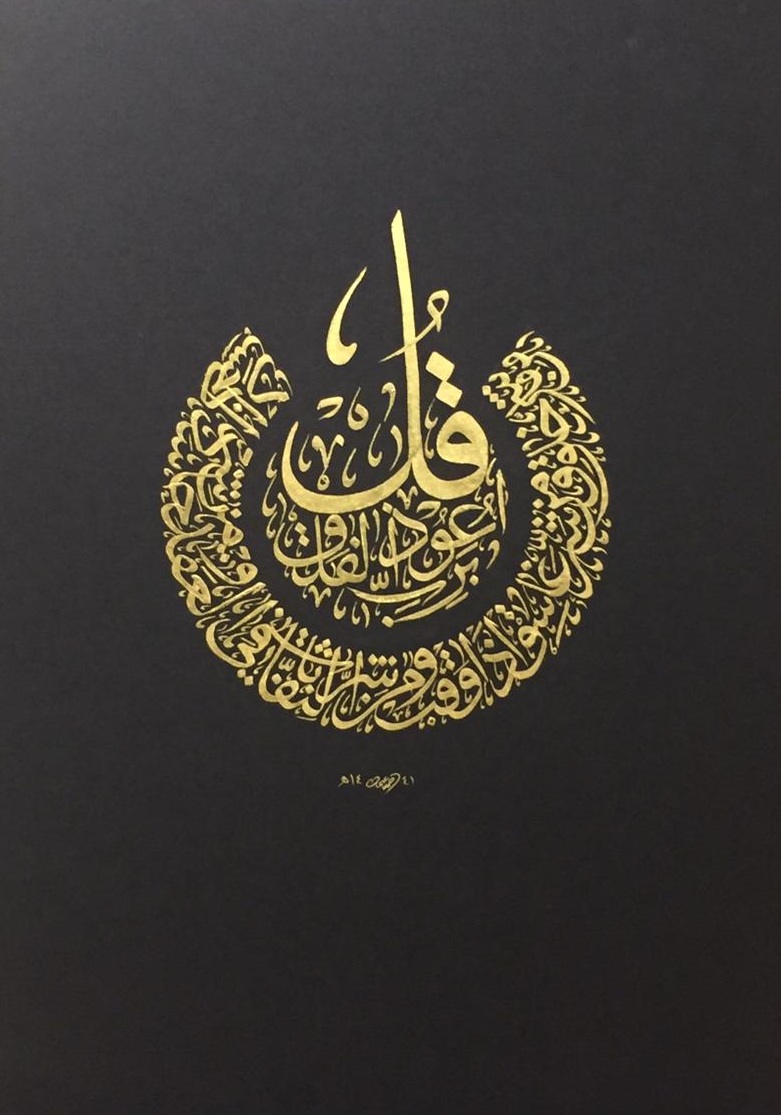 قُل
أعُوذُ
بِرَبِّ الفلق
من شر ما خلق ومن شر غاسق إذا وقب ومن شرِّ النَّفّاثات في العقد ومن شر حاسد إذا حسد